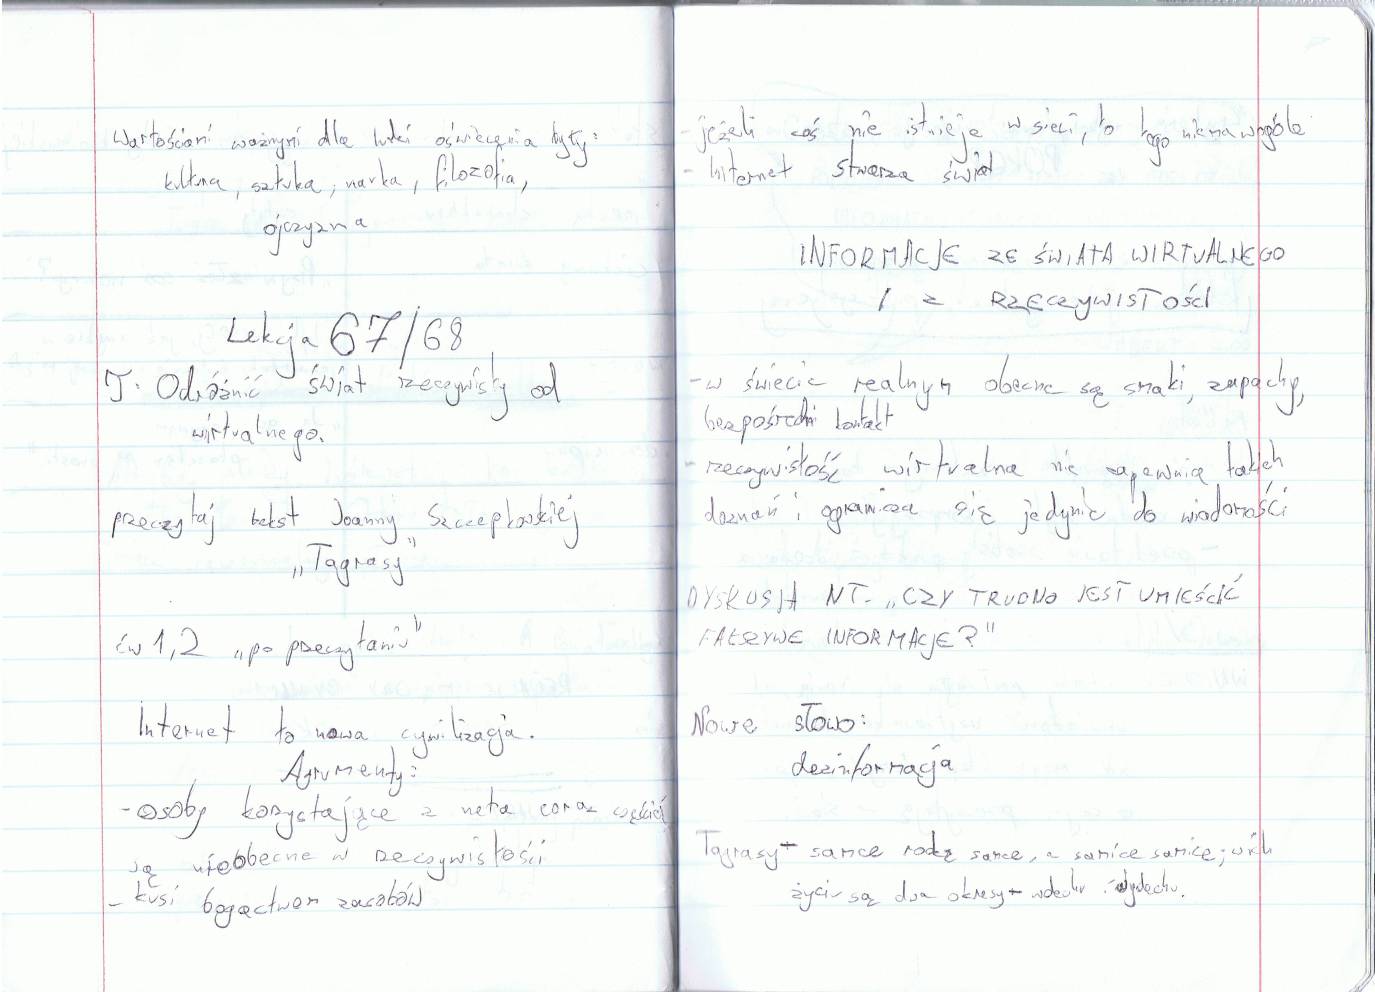 Wartościami ważnymi dla ludzi oświecenia były:
kultura, sztuka, nauka, filozofia,
ojczyzna
Lekcja 67/68
T: Odróżnić świat rzeczywisty od
wirtualnego.
przeczytaj tekst Joanny Szczepkowskiej
„Tagrasy"
ćw 1,2 „po przeczytaniu"
Internet to nowa cywilizacja.
Agrumenty:
- osoby korzystające z neta coraz częściej
są nieobecne w rzeczywistości
- kusi bogactwem zasobów
- jeżeli coś nie istnieje w sieci, to tego niema wogóle
- Internet stwarza świat
INFORMACJE ZE ŚWIATA WIRTUALNEGO
I Z RZECZYWISTOŚCI
- w świecie realnym obecne są smaki, zapachy,
bezpośredni kontakt
- rzeczywistość wirtualna nie zapewnia takich
doznań i ogranicza się jedynie do wiadomości
DYSKUSJA NT. „CZY TRUDNO JEST UMIEŚCIĆ
FAŁSZYWE INFORMACJE?"
Nowe słowo:
dezinformacja
Tagrasy - samce rodzą samce, a samice samice; w ich
życiu są dwa okresy - wdechu i wydechu.